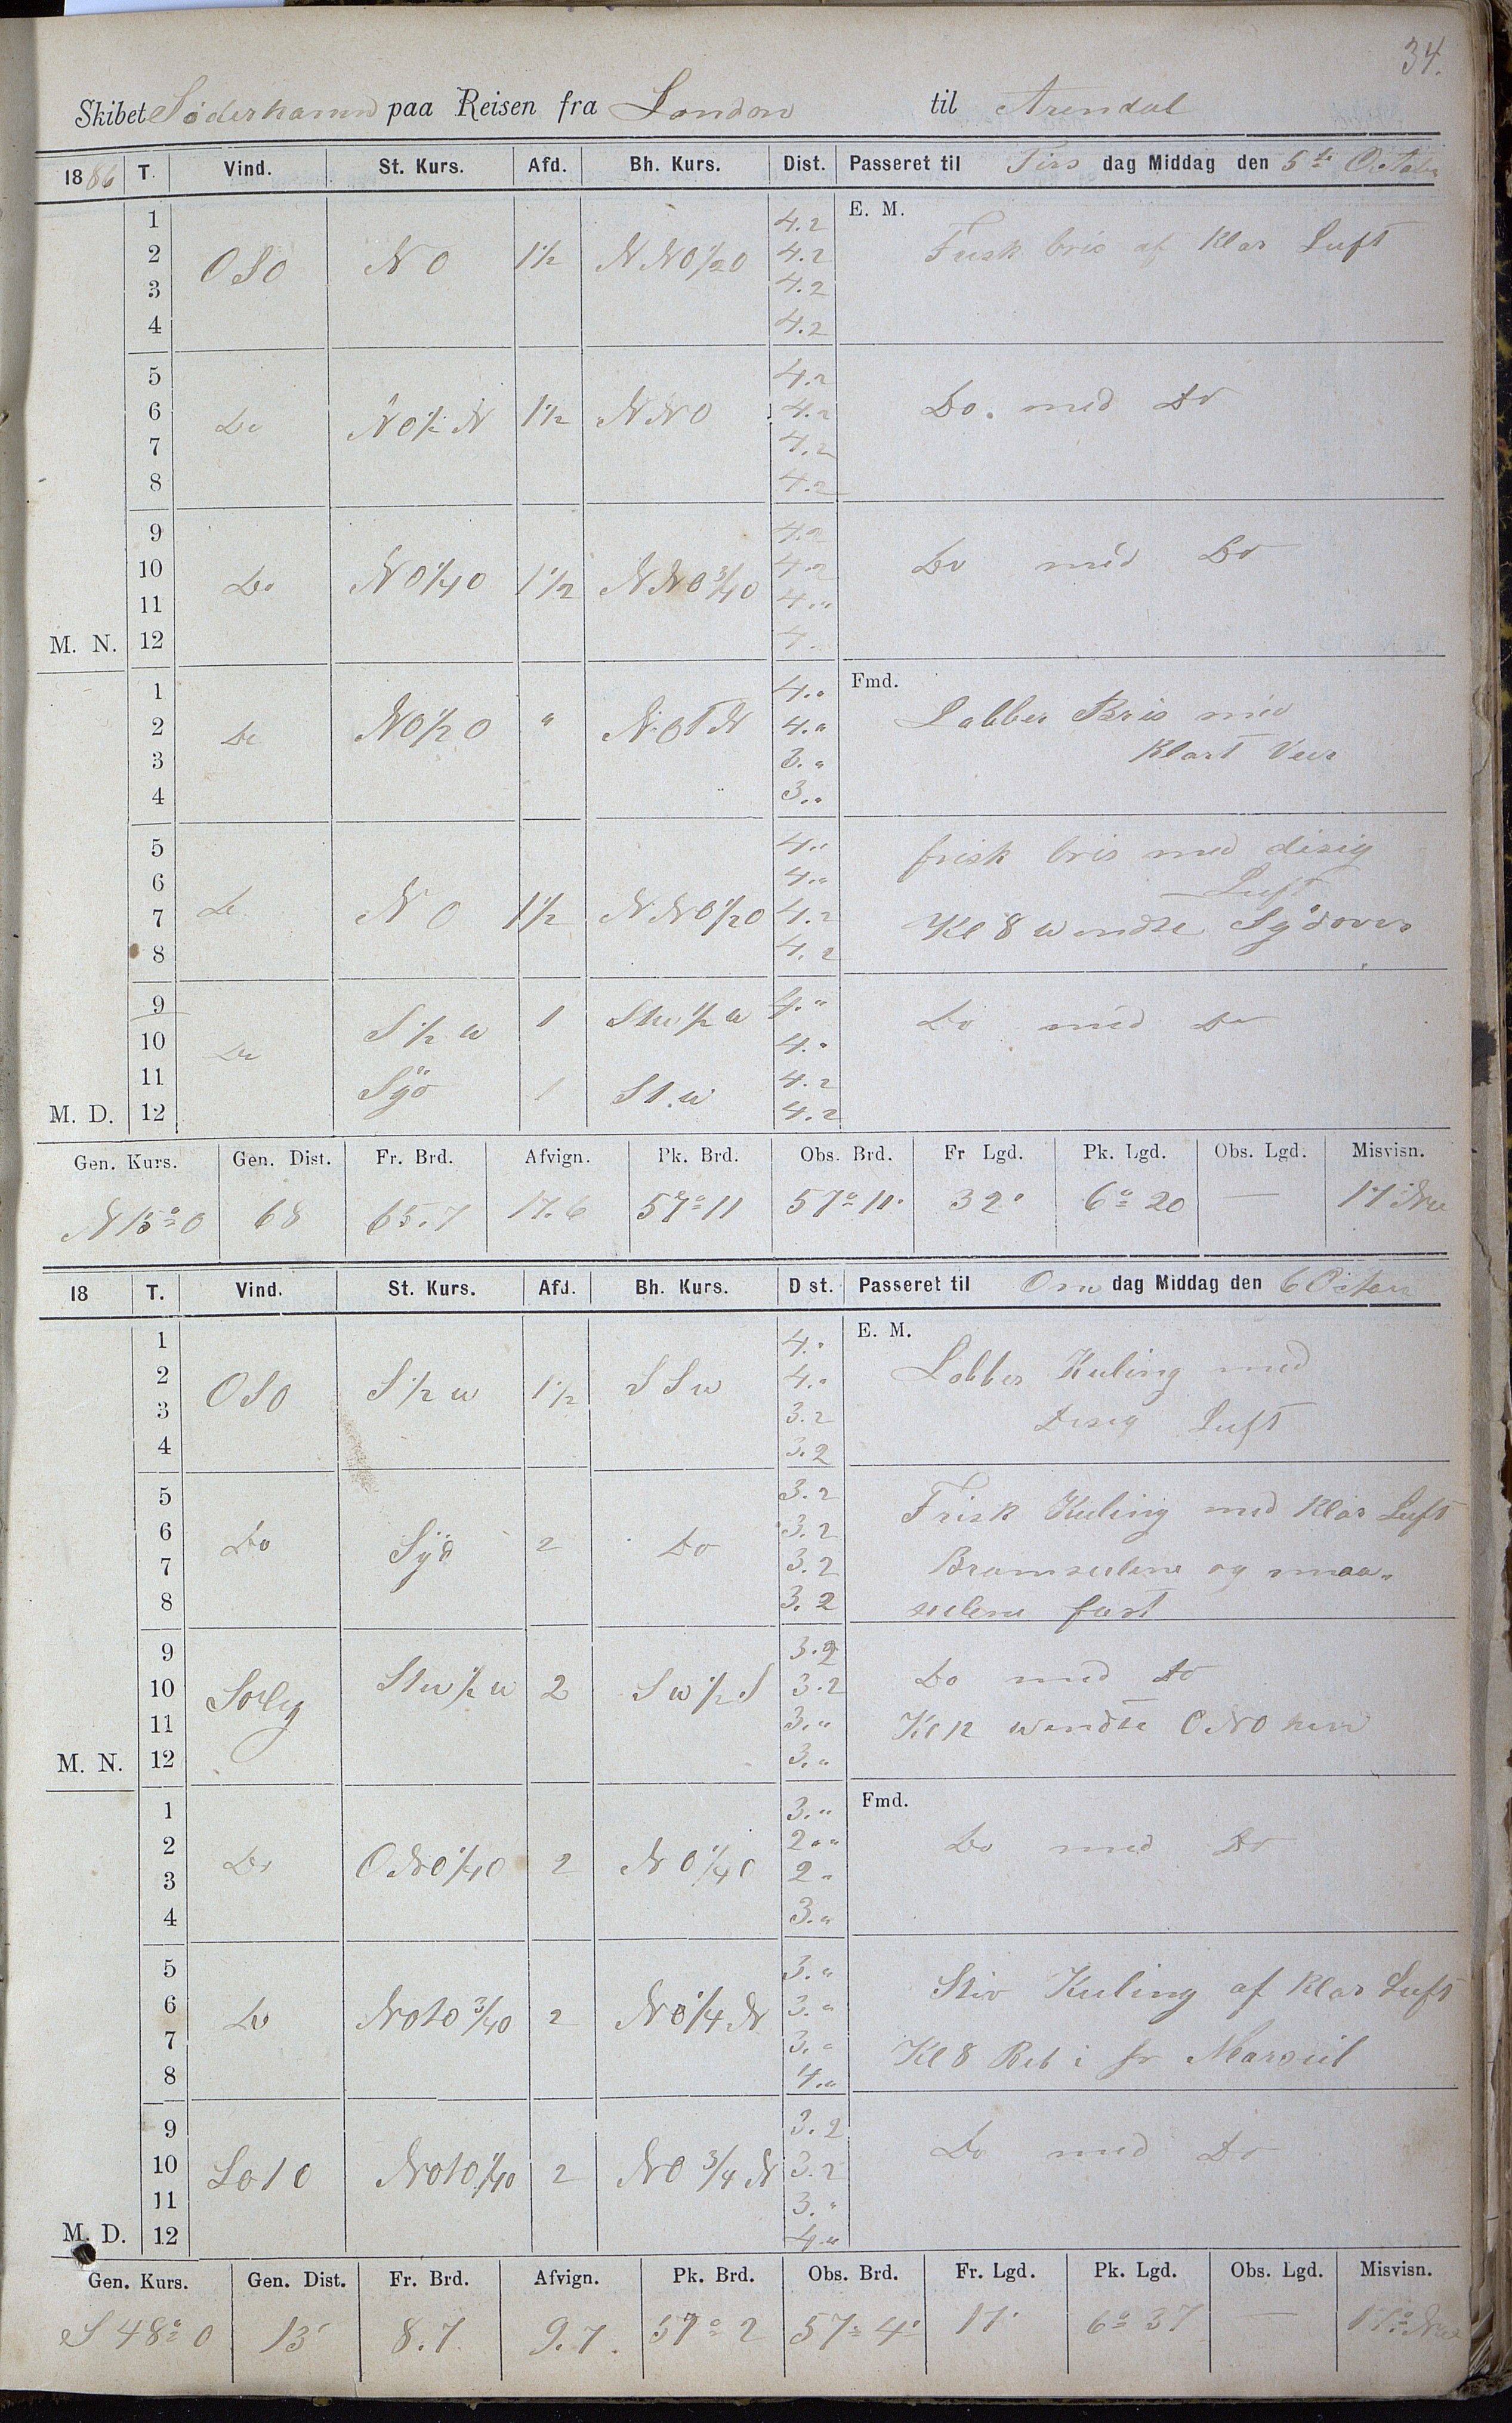 34.
Skibet Söderhamn paa Reisen fra London til Arendal
1886 T. Vind. St. Kurs. Afd. Bh. Kurs. Dist. Passeret til Tirs dag Middag den 5te October
E. M.
1 4.2
2 OSO NO 1½ NNO½O 4.2 Frisk bris af Klar Luft
3 4.2
4 4.2
5 4.2
6 Do NO½N 1½ NNO 4.2 Do. med Do
7 4.2
8 4.2
9 4.2
10 Do NO¼O 1½ NNO¾O 4.2 Do med Do
11 4."
M. N. 12 4.
Fmd.
1 4."
2 Do NO½O " NOtN 4." Labber Bris med
3 3." Klart Veir
4 3."
5 4." frisk bris med disig
6 4." Luft
7 Do NO 1½ NNO½O 4.2 Kl 8 wendte Sydover
8 4.2
9 S½W 1 StW½W 4."
10 Do 4." Do med Do
11 Syd 1 StW 4.2
M. D. 12 4.2
Gen. Kurs. Gen. Dist. Fr. Brd. Afvign. Pk. Brd. Obs. Brd. Fr Lgd. Pk. Lgd. Obs. Lgd. Misvisn.
N15°O 68 65.7 17.6 57°11 57°11' 32' 6°20 — 17°NW
18 T. Vind. St. Kurs. Afd. Bh. Kurs. Dist. Passeret til Ons dag Middag den 6 October
E. M.
1 4."
2 OSO S½W 1½ SSW 4." Labber Kuling med
3 3.2 Disig Luft
4 3.2
5 3.2 Frisk Kuling med Klar Luft
6 Do Syd 2 Do 3.2
7 3.2 Bramseilene og smaa-
8 3.2 seilene fast
9 3.2 Do med Do
10 Sørlig StW½W 2 SW½S 3.2
11 3." Kl 12 wendte ONO over
M. N. 12 3."
Fmd.
1 3."
2 Do ONO¼O 2 NO¼O 2." Do med Do
3 2."
4 3."
5 3." Stiv Kuling af Klar Luft
6 Do NOtO¾O 2 NO¼N 3."
7 3." Kl 8 Reb i fr Marseil
8 4."
9 3.2
10 SOtO NOtO¼O 2 NO¾N 3.2 Do med Do
11 3."
M. D. 12 4."
Gen. Kurs. Gen. Dist. Fr. Brd. Afvign. Pk. Brd. Obs. Brd. Fr. Lgd. Pk. Lgd. Obs. Lgd. Misvisn.
S48°O 13' 8.7 9.7. 57°2 57°4' 17' 6°37 — 17°NW